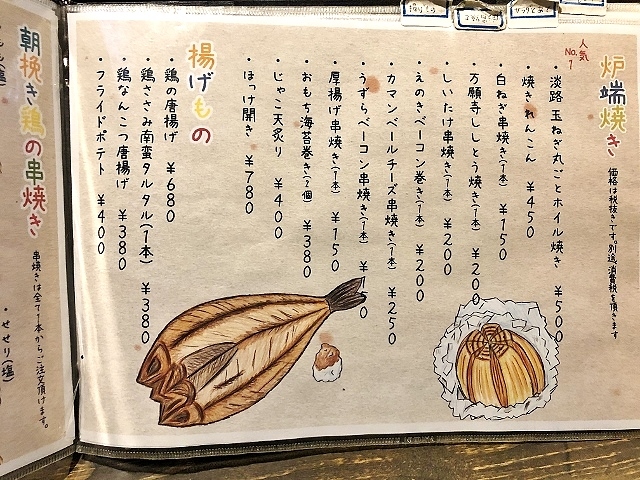 炉端焼き
価格は税抜きです。別途、消費税を頂きます
人気
No.1
・淡路 玉ねぎ丸ごとホイル焼き ¥500
・焼きれんこん ¥450
・白ねぎ串焼き(1本) ¥150
・万願寺ししとう焼き(1本) ¥200
・しいたけ串焼き(1本) ¥200
・えのきベーコン巻き(1本) ¥200
・カマンベールチーズ串焼き(1本) ¥250
・うずらベーコン串焼き(1本)
・厚揚げ串焼き(1本) ¥150
・おもち海苔巻き(2個) ¥380
・じゃこ天炙り ¥400
・ほっけ開き ¥780
揚げもの
・鶏の唐揚げ ¥680
・鶏ささみ南蛮タルタル(1本) ¥380
・鶏なんこつ唐揚げ ¥380
・フライドポテト ¥400
朝挽き鶏の串焼き
串焼きは全て1本からご注文頂けます。
・せせり(塩)